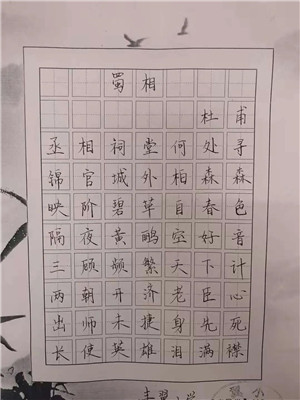 蜀相
杜甫
丞相祠堂何处寻
锦官城外柏森森
映阶碧草自春色
隔夜黄鹂空好音
三顾频繁天下计
两朝开济老臣心
出师未捷身先死
长使英雄泪满襟